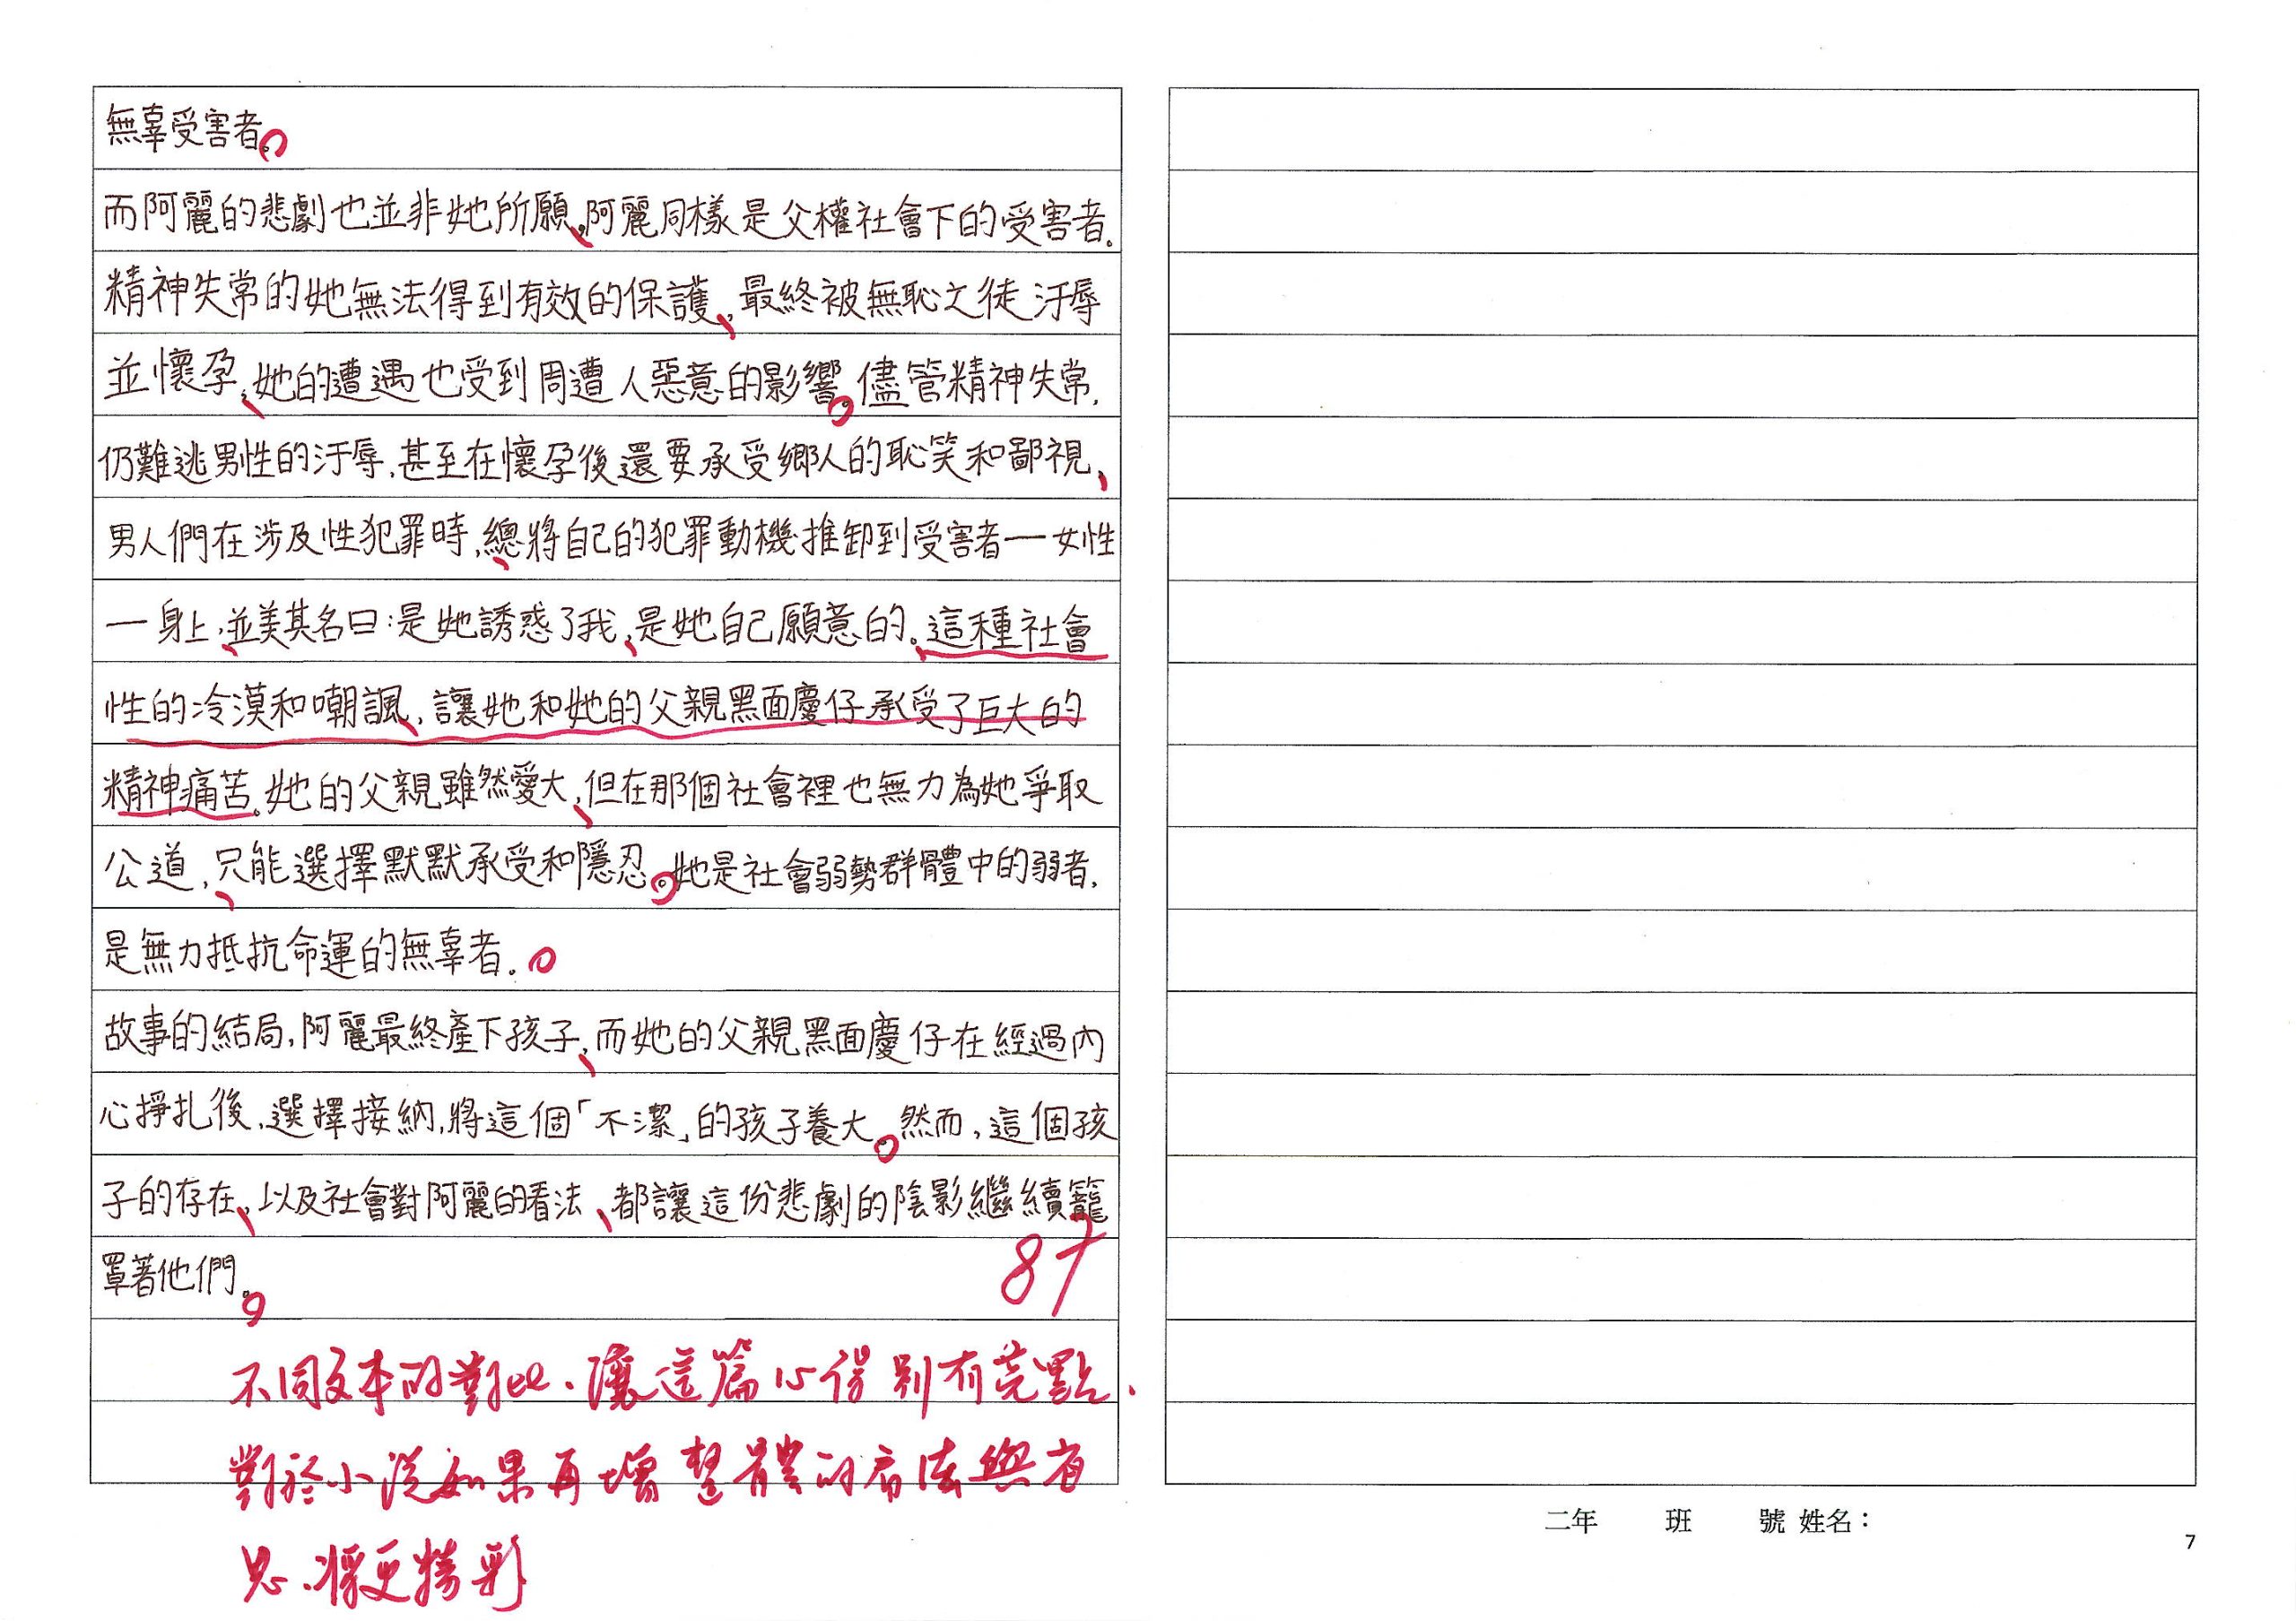 無辜受害者。
而阿麗的悲劇也並非她所願,阿麗同樣是父權社會下的受害者。
精神失常的她無法得到有效的保護,最終被無恥之徒汙辱
並懷孕,她的遭遇也受到周遭人惡意的影響。儘管精神失常,
仍難逃男性的汙辱,甚至在懷孕後還要承受鄉人的恥笑和鄙視,
男人們在涉及性犯罪時,總將自己的犯罪動機推卸到受害者—女性
—身上,並美其名曰:是她誘惑了我,是她自己願意的。這種社會
性的冷漠和嘲諷,讓她和她的父親黑面慶仔承受了巨大的
精神痛苦。她的父親雖然愛大,但在那個社會裡也無力為她爭取
公道,只能選擇默默承受和隱忍。她是社會弱勢群體中的弱者,
是無力抵抗命運的無辜者。
故事的結局,阿麗最終產下孩子,而她的父親黑面慶仔在經過內
心掙扎後,選擇接納,將這個「不潔」的孩子養大。然而,這個孩
子的存在,以及社會對阿麗的看法,都讓這份悲劇的陰影繼續籠
罩著他們。
87
不同文本的對比、讓這篇心得別有亮點、
對於小說如果再增整體的看法與省
思、將更精彩
二年 班 號 姓名:
7